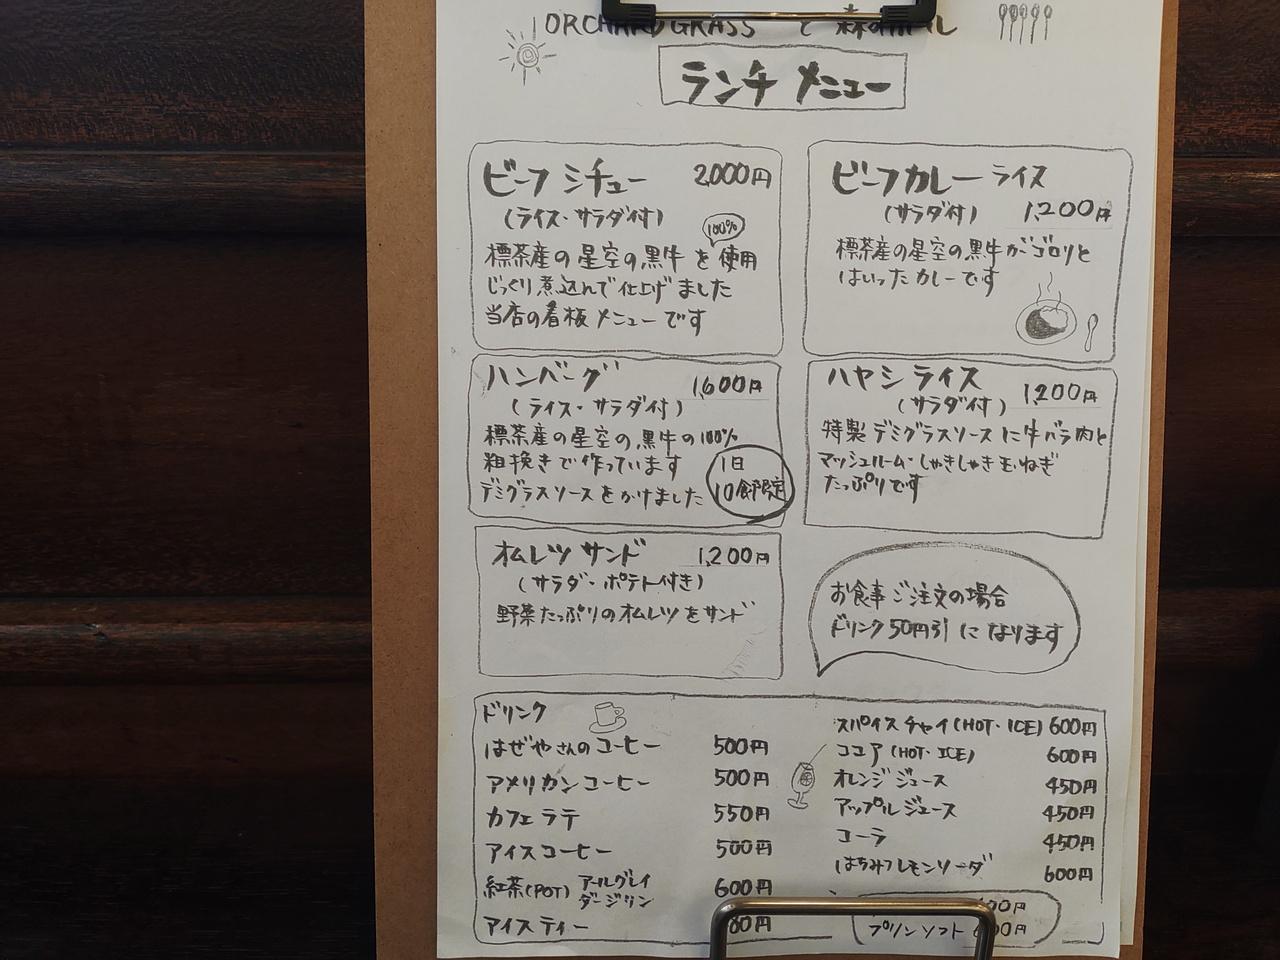 ORCHARD GRASS と 森の
ランチ メニュー
ビーフ シチュー 2,000円
(ライス・サラダ付)
100%
標茶産の星空の黒牛を使用
じっくり煮込んで仕上げました
当店の看板メニューです
ビーフカレーライス
(サラダ付) 1,200円
標茶産の星空の黒牛がゴロリと
はいったカレーです
ハンバーグ 1,600円
(ライス・サラダ付)
標茶産の星空の黒牛の100%
粗挽きで作っています
デミグラスソースをかけました
1日
10食限定
ハヤシライス 1,200円
(サラダ付)
特製デミグラスソースに牛バラ肉と
マッシュルーム・しゃきしゃき玉ねぎ
たっぷりです
オムレツサンド 1,200円
(サラダ・ポテト付き)
野菜たっぷりのオムレツをサンド
お食事ご注文の場合
ドリンク50円引になります
ドリンク
はぜやさんのコーヒー 500円
アメリカンコーヒー 500円
カフェラテ 550円
アイスコーヒー 500円
紅茶(POT) アールグレイ ダージリン 600円
アイスティー
スパイスチャイ(HOT・ICE) 600円
ココア(HOT・ICE) 600円
オレンジジュース 450円
アップルジュース 450円
コーラ 450円
はちみつレモンソーダ 600円
プリンソフト